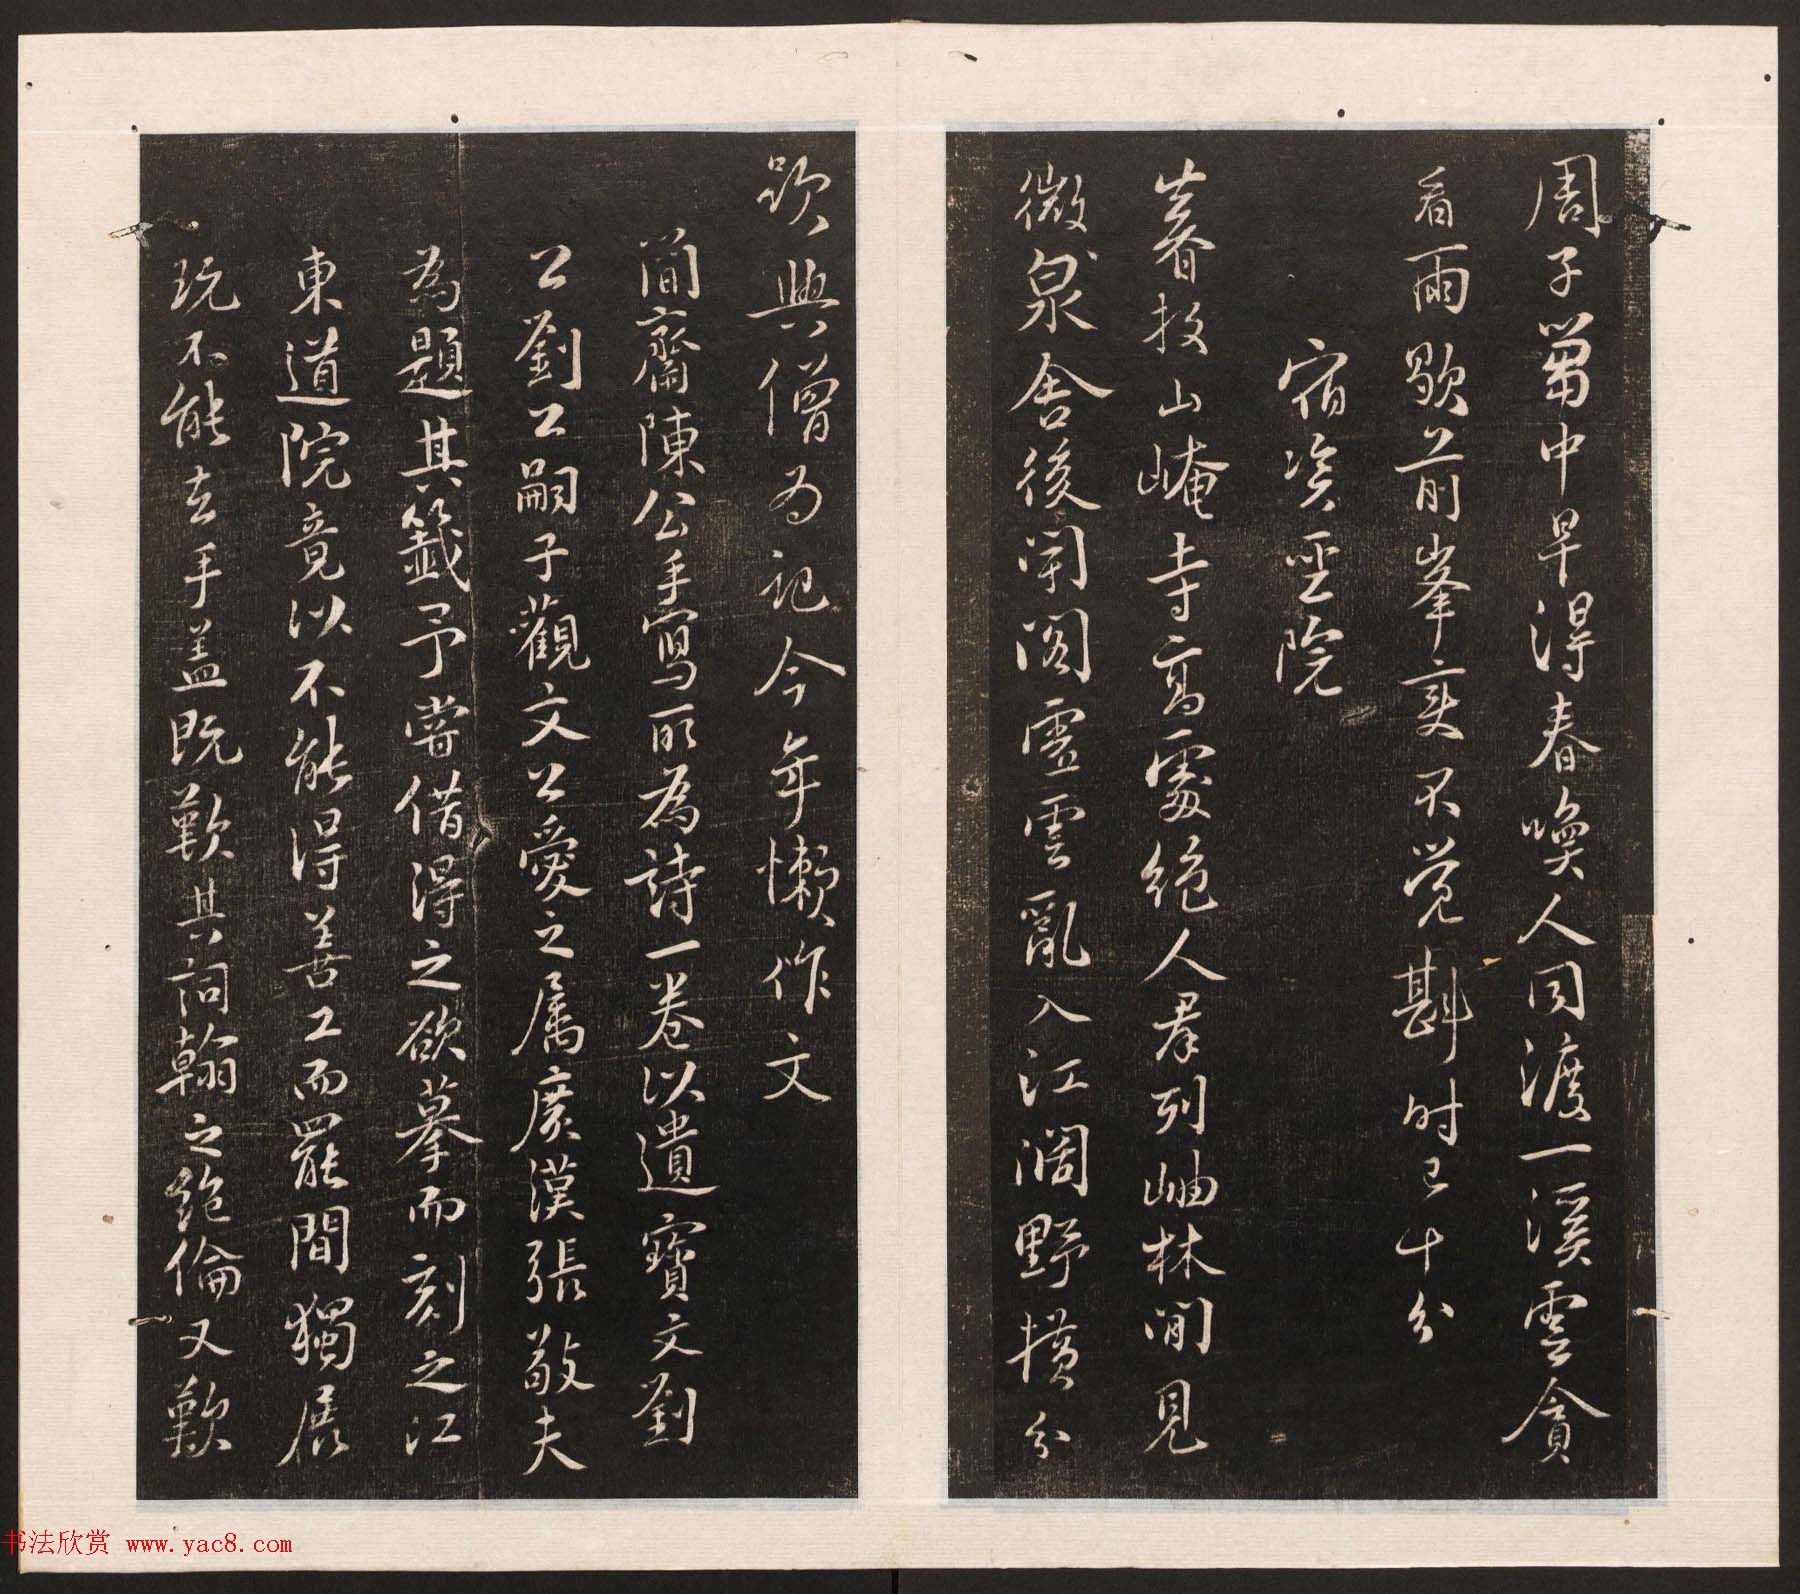 周子篘中早得春喚人同渡一溪雲貪
看雨歇前峯变不覺斟时已十分
宿资聖院
暮投山崦寺高處絶人羣列岫林間見
微泉舍後聞閣虚雲亂入江濶野橫分
欲與僧为記今年懶作文
簡齋陳公手寫所為詩一卷以遺寶文劉
公劉公嗣子觀文公愛之属廣漢張敬夫
為題其籤予嘗借得之欲摹而刻之江
東道院竟以不能得善工而罷間獨展
玩不能去手盖既歎其詞翰之絶倫又歎
书法欣赏 www.yac8.com